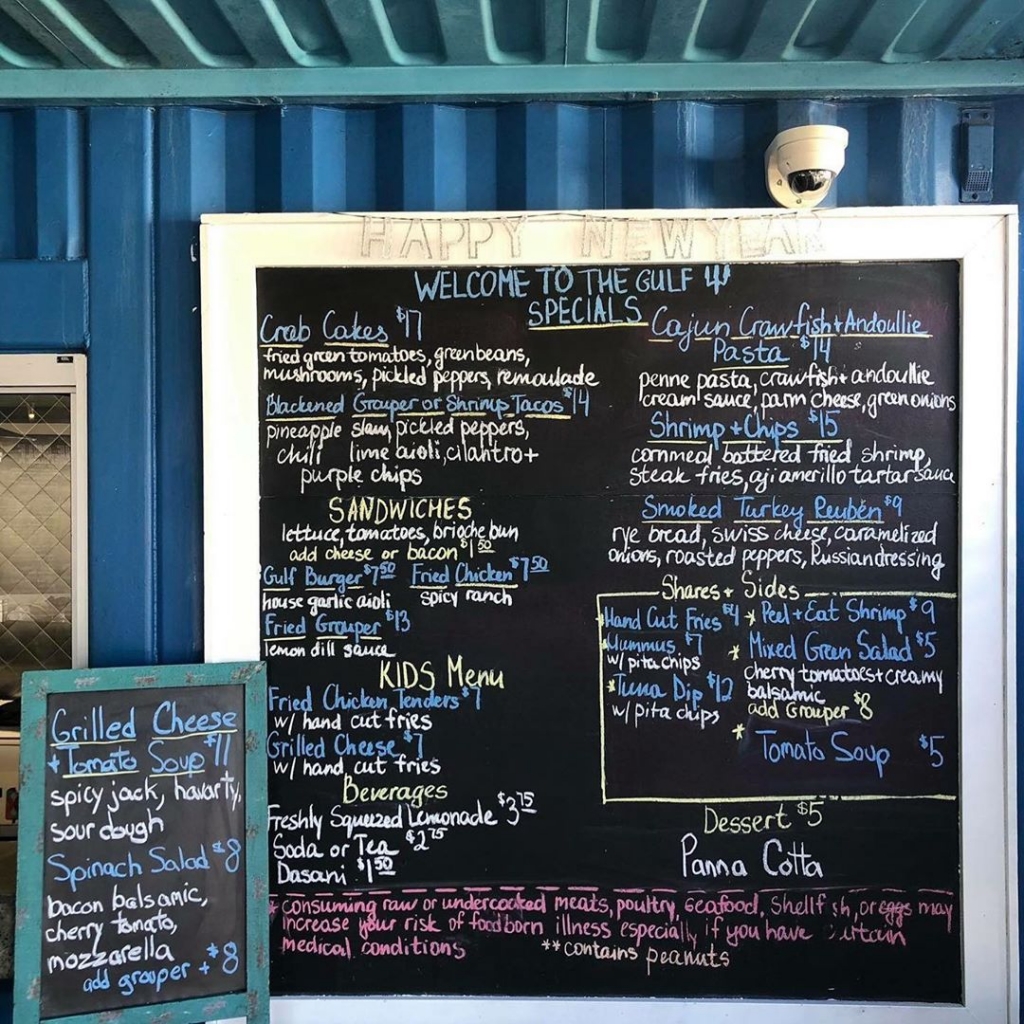 HAPPY NEW YEAR
WELCOME TO THE GULF
SPECIALS
Crab Cakes $17
fried green tomatoes, green beans,
mushrooms, pickled peppers, remoulade
Blackened Grouper or Shrimp Tacos $14
pineapple slaw, pickled peppers,
chili lime aioli, cilantro +
purple chips
SANDWICHES
lettuce, tomatoes, brioche bun
add cheese or bacon $1.50
Gulf Burger $7.50 Fried Chicken $7.50
house garlic aioli spicy ranch
Fried Grouper $13
lemon dill sauce
KIDS Menu
Fried Chicken Tenders $7
w/ hand cut fries
Grilled Cheese $7
w/ hand cut fries
Beverages
Freshly Squeezed Lemonade $3.75
Soda or Tea $2.75
Dasani $1.50
Cajun Crawfish + Andoullie
Pasta $14
penne pasta, crawfish + andoullie
cream sauce, parm cheese, green onions
Shrimp + Chips $15
cornmeal battered fried shrimp,
steak fries, aji amerillo tartar sauce
Smoked Turkey Reuben $9
rye bread, swiss cheese, caramelized
onions, roasted peppers, Russian dressing
Shares + Sides
Hand Cut Fries $4
*Hummus $7
w/ pita chips
*Tuna Dip $12
w/ pita chips
* Peel + Eat Shrimp $9
* Mixed Green Salad $5
cherry tomatoes + creamy
balsamic
add Grouper $8
* Tomato Soup $5
Dessert $5
Panna Cotta
* consuming raw or undercooked meats, poultry, seafood, Shellfish, or eggs may
increase your risk of foodborn illness especially if you have
medical conditions **contains peanuts
Grilled Cheese
+ Tomato Soup $11
spicy jack, havarty,
sour dough
Spinach Salad $8
bacon balsamic,
cherry tomato,
mozzarella
add grouper + $8